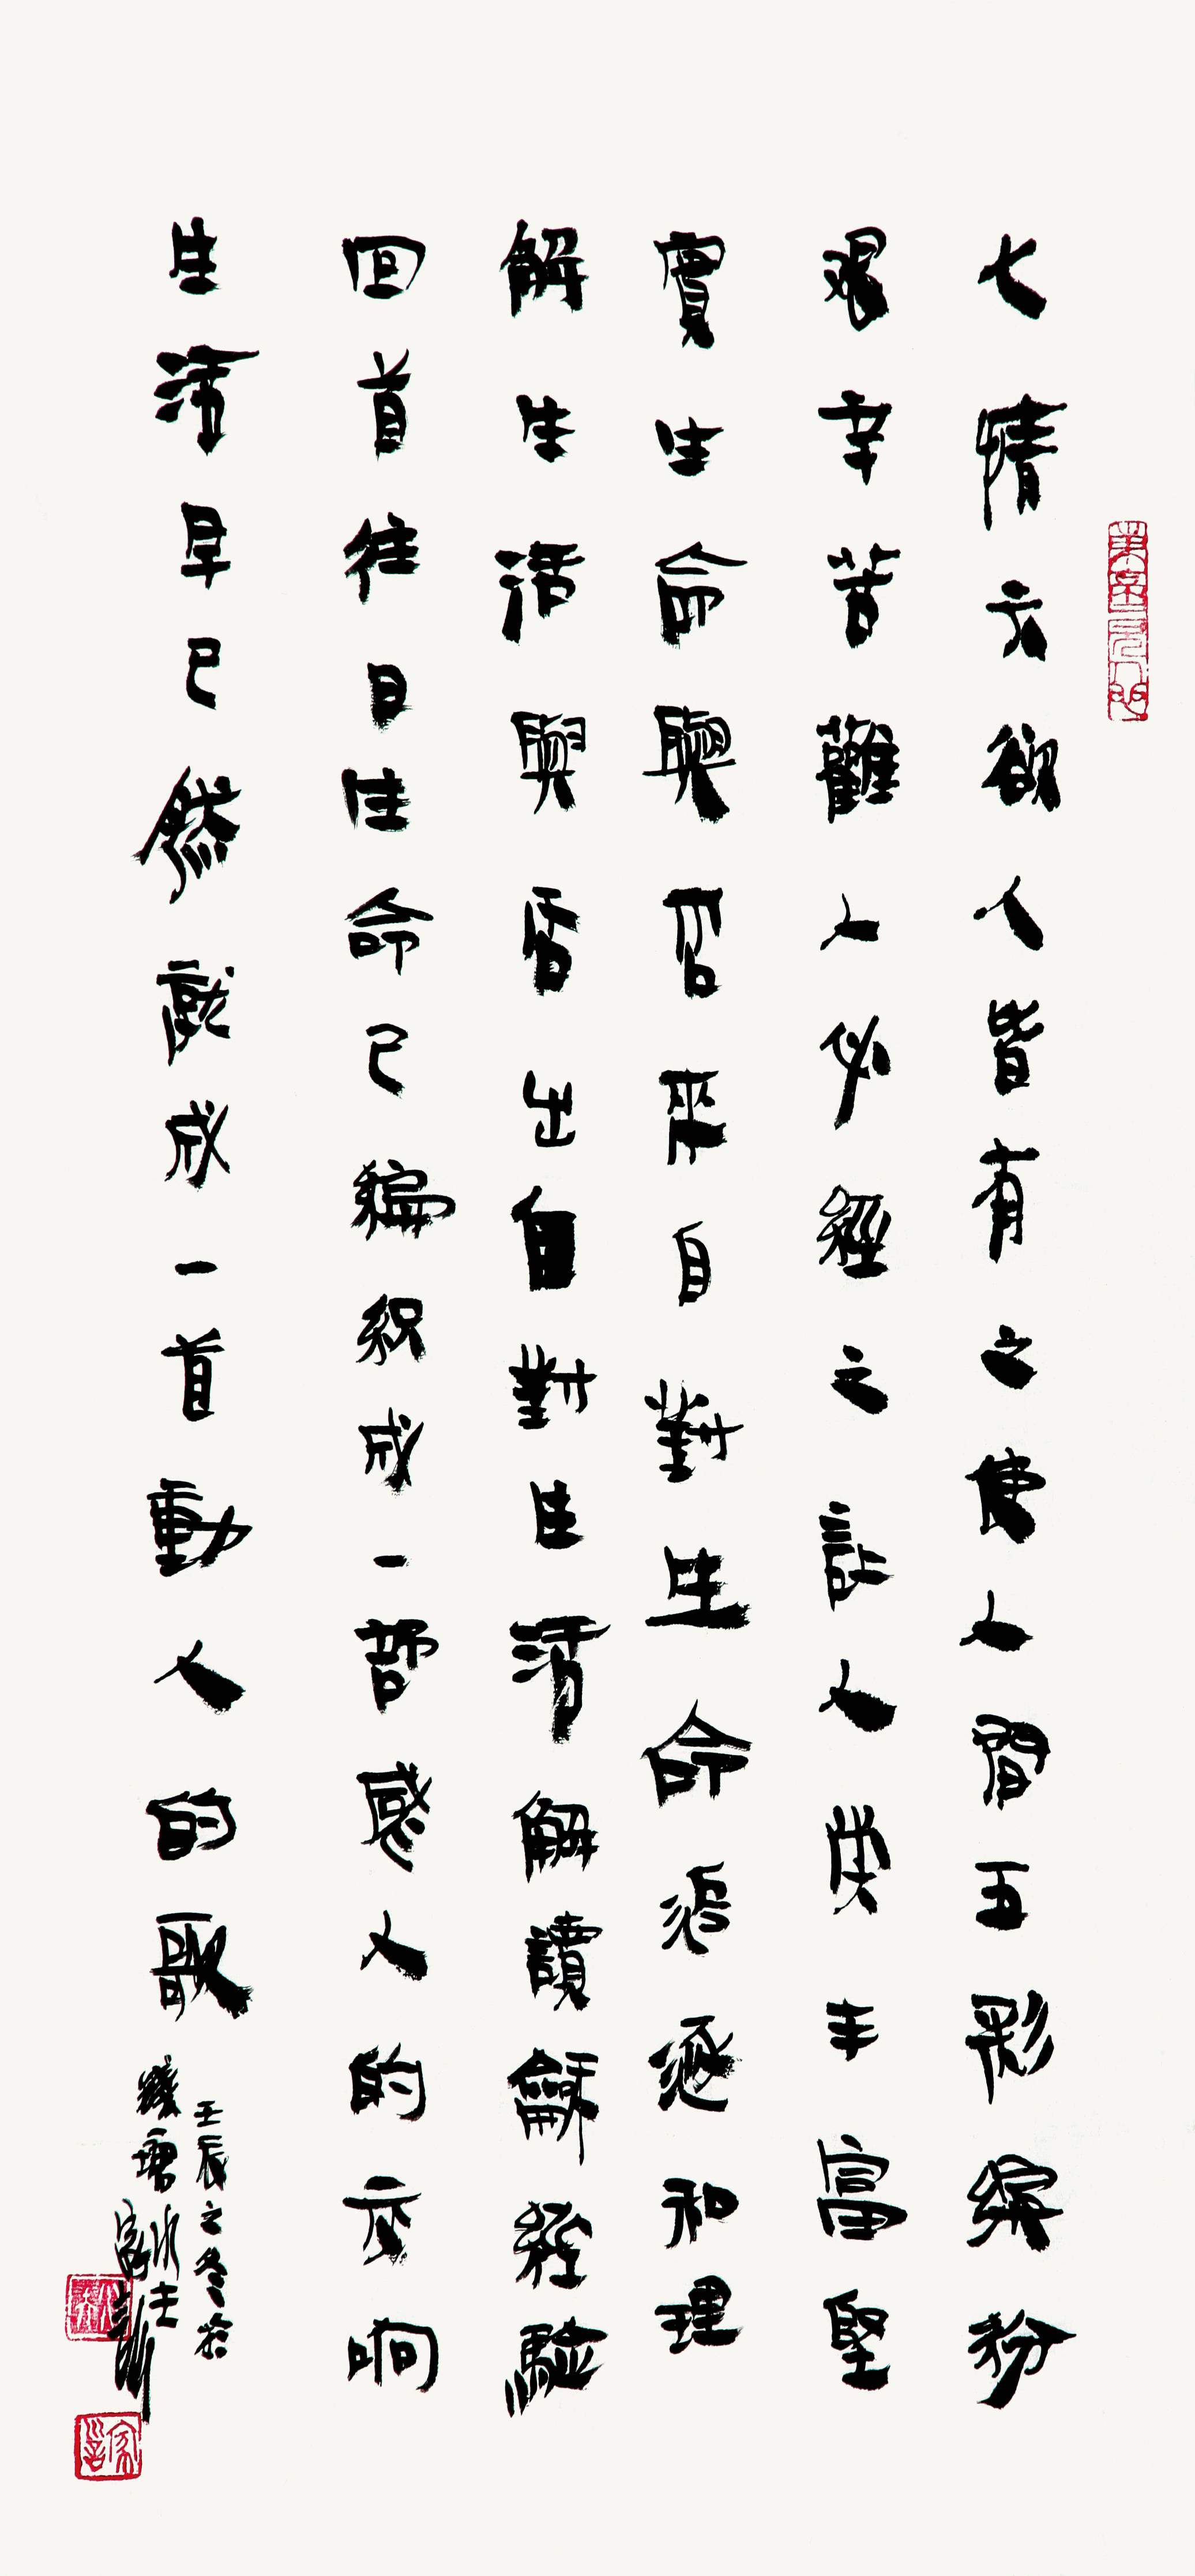 七情六欲人皆有之使人間五彩繽紛
艱辛苦難人必經之認人類丰富堅
實生命與否來自對生命追逐和理
解生活與否出自對生活解讀龢經驗
回首往日生命已編織成一部感人的交响
生活早已然就成一首動人的歌
壬辰之冬於
錢唐